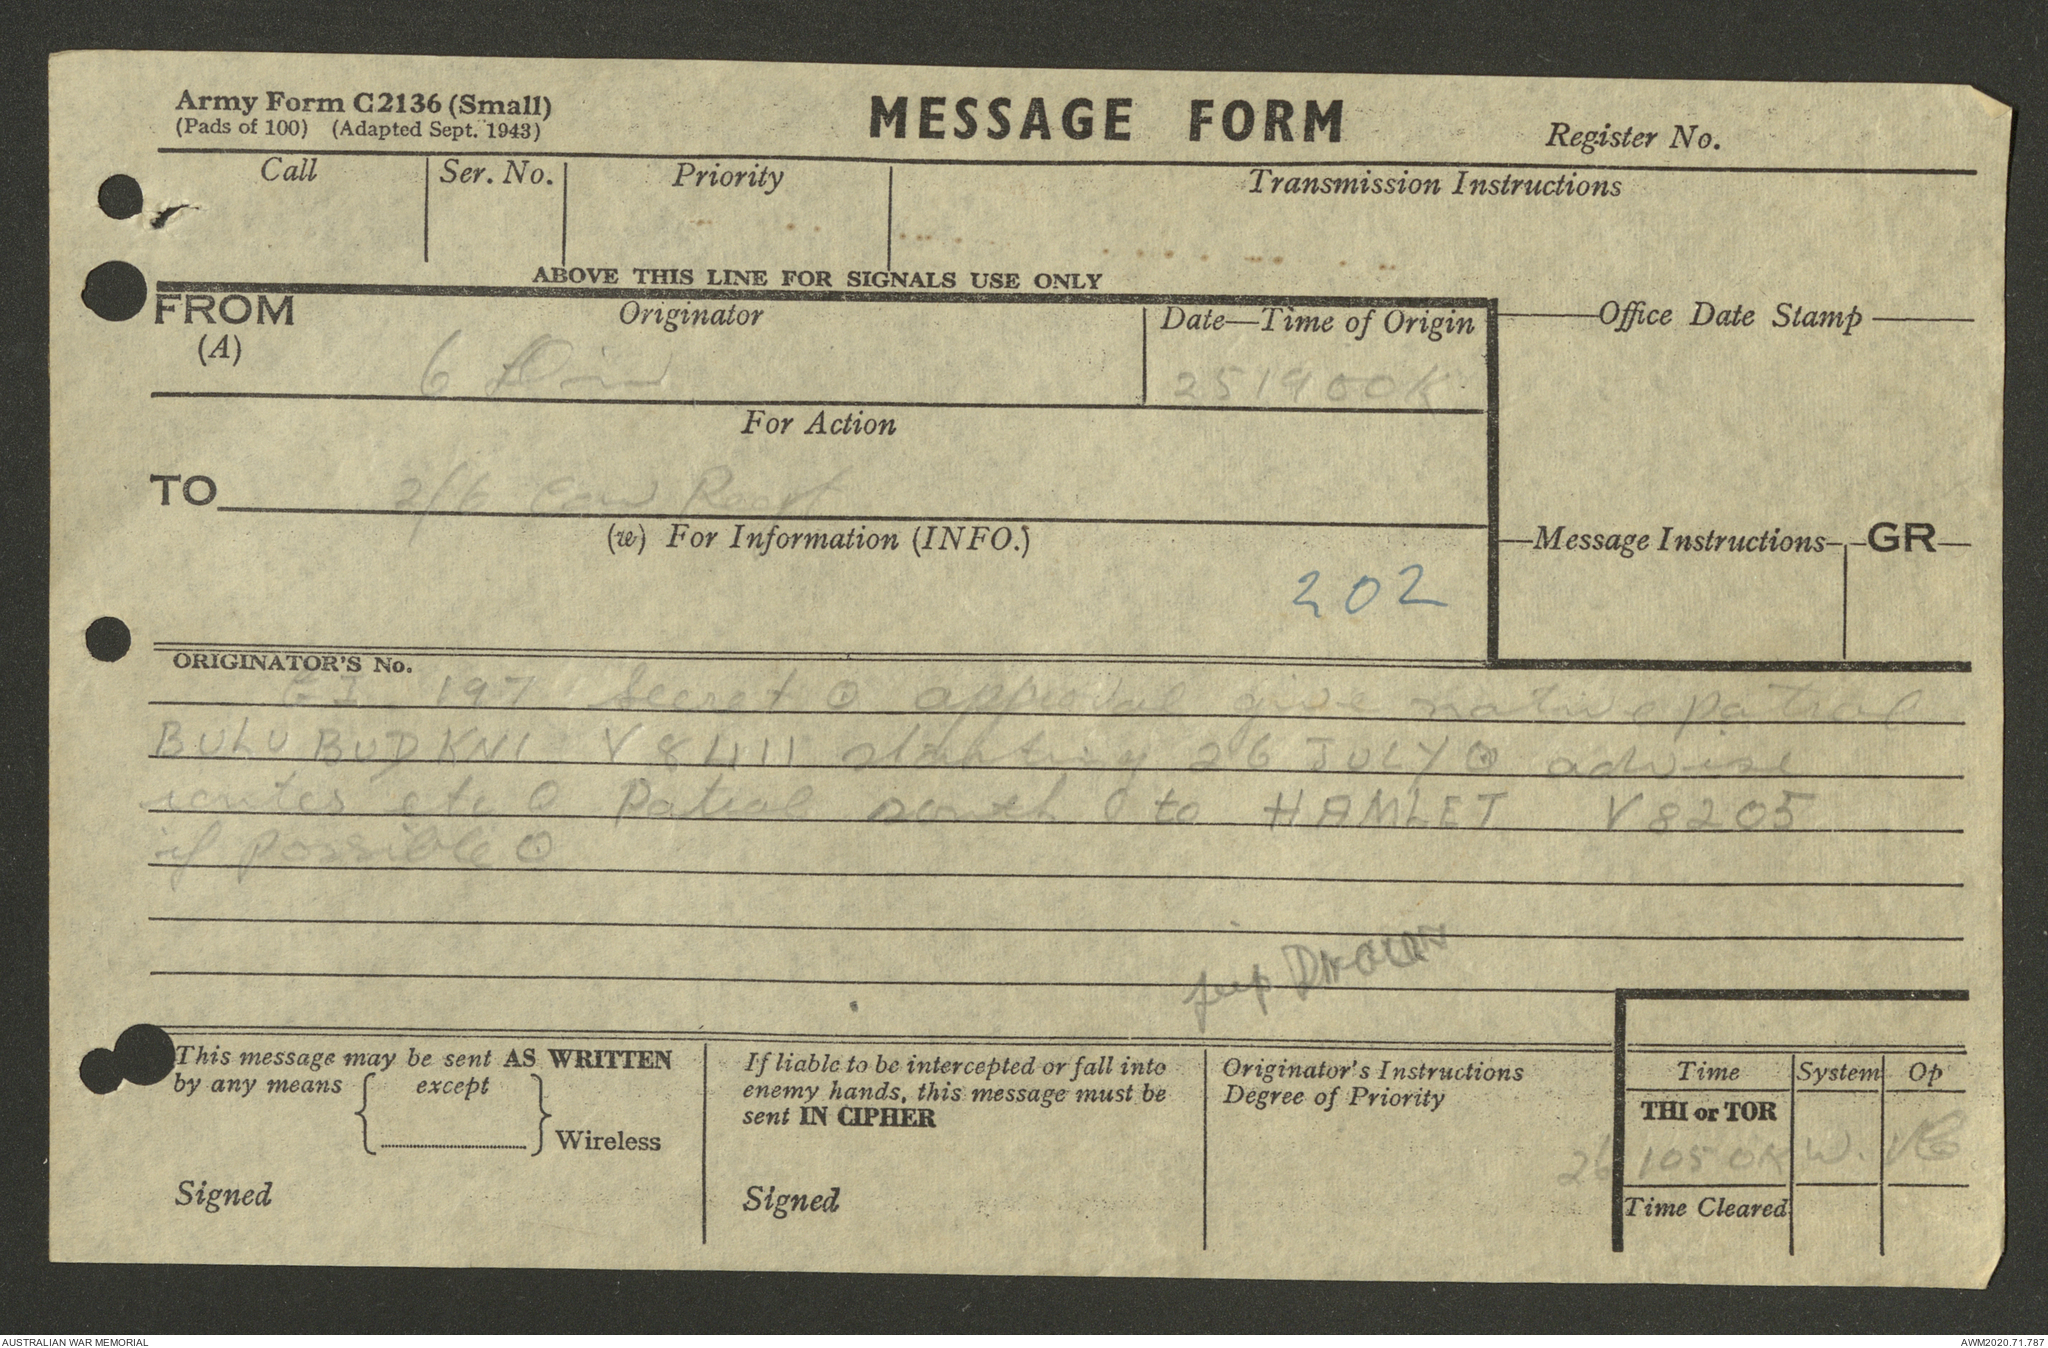 Army Form C2136 (Small)
(Pads of 100) (Adapted Sept. 1943)
MESSAGE FORM
Register No.
Call
Ser. No.
Priority
Transmission Instructions
ABOVE THIS LINE FOR SIGNALS USE ONLY
FROM
(A)
Originator
6 Div
Date—Time of Origin
251900K
Office Date Stamp
For Action
TO
2/6 Cav Regt
(W) For Information (INFO.)
202
Message Instructions
GR
ORIGINATOR'S No.
GI 197 Secret O approval give native patrol
BULU BUDKNI V8411 starting 26 JULY O advise
routes etc O Patrol south O to HAMLET V8205
if possible O
This message may be sent AS WRITTEN
by any means except
Wireless
Signed
If liable to be intercepted or fall into
enemy hands, this message must be
sent IN CIPHER
Signed
Originator's Instructions
Degree of Priority
Time
System
Op
THI or TOR
26 1050K W.
Time Cleared
AUSTRALIAN WAR MEMORIAL
AWM2020.71.787